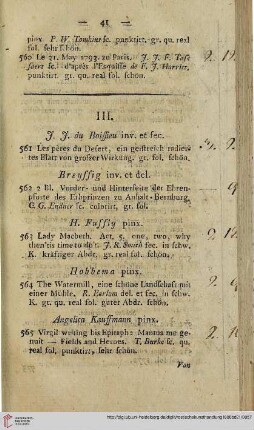 — 41 —
pinx. F. W. Tomkins sc. punktirt. gr. qu. real
fol. sehr schön.
560 Le 21. May 1793. zu Paris. J. J. F.
sc. d'après l'Esquisse de F. J. Harriet,
punktirt. gr. qu. real fol. schön.
III.
J. J. du Boissieu inv. et fec.
561 Les pères du Desert, ein geistreich radirtes Blatt von grosser Wirkung. gr. fol. schön.
Breyssig inv. et del.
562 2 Bl. Vorder- und Hinterseite der Ehrenpforte des Erbprinzen zu Anhalt-Bernburg,
C. G. sc. colorirt, gr. fol.
H. Fuessly pinx.
563 Lady Macbeth. Act. 5. one, two, why
then'tis time to do't. J. R. Smith fec. in schw.
K. kräftiger Abdr. gr. real fol. schön.
Hobbema pinx.
564 The Watermill, eine schöne Landschaft mit
einer Mühle. R. Earlom del. et fec. in schw.
K. gr. qu. real fol. guter Abdr. schön.
Angelica Kauffmann pinx.
565 Virgil writing his Epitaph: Mantua me genuit — Fields and Heroes. T. Burke sc. qu.
real fol. punktirt, sehr schön.
Von